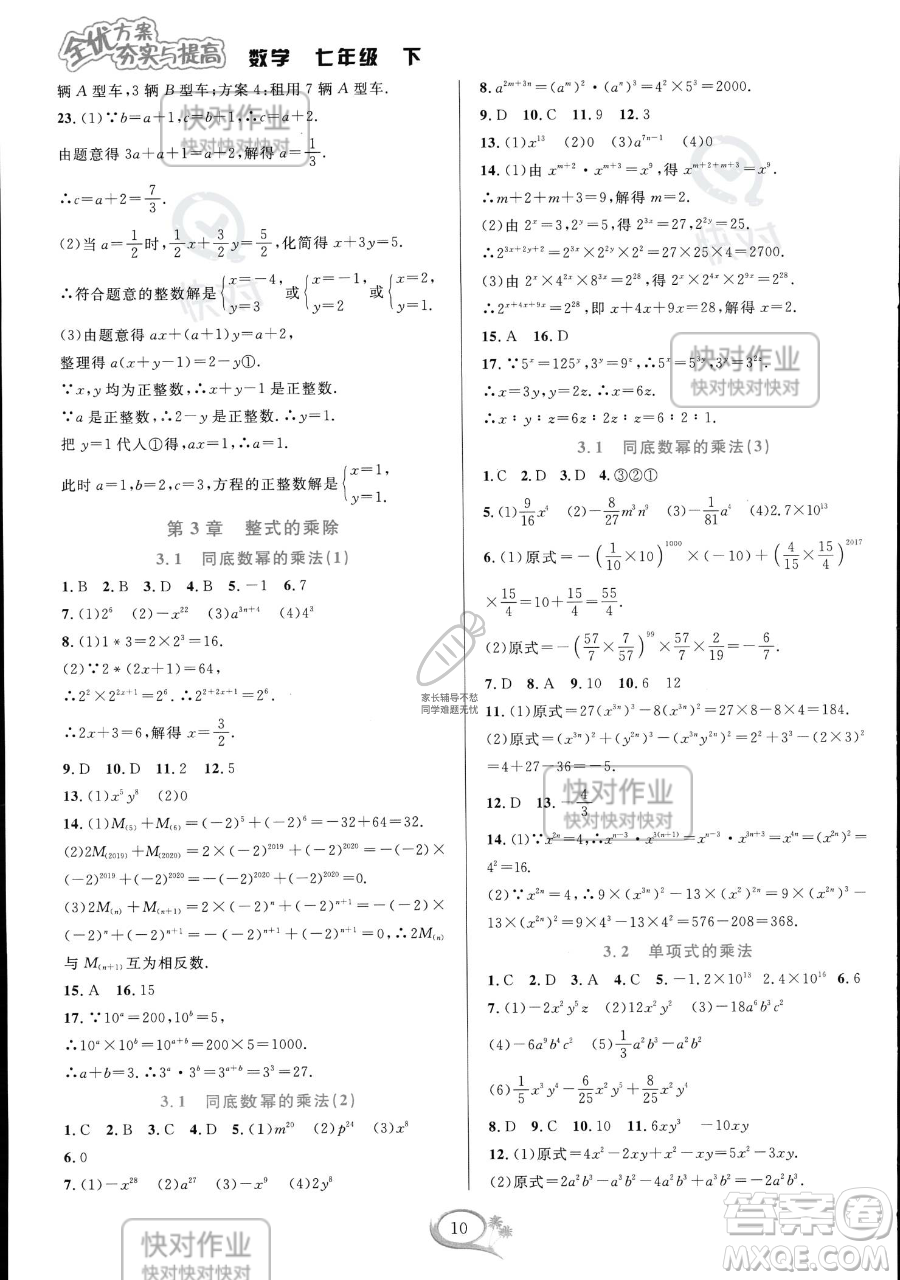 全优方案
夯实与提高 数学 七年级 下
辆 A 型车,3 辆 B 型车;方案 4:租用 7 辆 A 型车.
23.(1)∵b=a+1,c=b+1,∴c=a+2.
由题意得 3a+a+1=a+2,解得 a=1/3.
∴c=a+2=7/3.
(2)当 a=1/2时,1/2x+3/2y=5/2,化简得 x+3y=5.
∴符合题意的整数解是{x=-4, y=3 或{x=-1, y=2 或{x=2, y=1.
(3)由题意得 ax+(a+1)y=a+2,
整理得 a(x+y-1)=2-y①.
∵x,y 均为正整数,∴x+y-1 是正整数.
∵a 是正整数,∴2-y 是正整数.∴y=1.
把 y=1 代入①得,ax=1.∴a=1.
此时 a=1,b=2,c=3,方程的正整数解是{x=1, y=1.
第 3 章 整式的乘除
3.1 同底数幂的乘法(1)
1.B 2.B 3.D 4.B 5.-1 6.7
7.(1)2⁶ (2)-x²² (3)a³ⁿ⁺⁴ (4)4³
8.(1)1*3=2×2³=16.
(2)∵2*(2x+1)=64,
∴2²×2²ˣ⁺¹=2⁶.∴2²⁺²ˣ⁺¹=2⁶.
∴2x+3=6,解得 x=3/2.
9.D 10.D 11.2 12.5
13.(1)x⁵y⁸ (2)0
14.(1)M₍₅₎+M₍₆₎=(-2)⁵+(-2)⁶=-32+64=32.
(2)2M₍₂₀₁₉₎+M₍₂₀₂₀₎=2×(-2)²⁰¹⁹+(-2)²⁰²⁰=-(-2)×
(-2)²⁰¹⁹+(-2)²⁰²⁰=-(-2)²⁰²⁰+(-2)²⁰²⁰=0.
(3)2M₍ₙ₎+M₍ₙ₊₁₎=2×(-2)ⁿ+(-2)ⁿ⁺¹=-(-2)×
(-2)ⁿ+(-2)ⁿ⁺¹=-(-2)ⁿ⁺¹+(-2)ⁿ⁺¹=0.∴2M₍ₙ₎
与 M₍ₙ₊₁₎ 互为相反数.
15.A 16.15
17.∵10ᵃ=200,10ᵇ=5,
∴10ᵃ×10ᵇ=10ᵃ⁺ᵇ=200×5=1000.
∴a+b=3.∴3ᵃ·3ᵇ=3ᵃ⁺ᵇ=3³=27.
3.1 同底数幂的乘法(2)
1.C 2.D 3.B 4.B 5.(1)m²⁰ (2)p²⁴ (3)x⁸
6.0
7.(1)-x²⁸ (2)-a¹⁵ (3)-x⁹ (4)2y⁸
8.a²ᵐ⁺³ⁿ=(aᵐ)²·(aⁿ)³=4²×5³=2000.
9.D 10.C 11.9 12.3
13.(1)x¹³ (2)0 (3)a⁷ⁿ⁻¹ (4)0
14.(1)由 xᵐ⁺²·xᵐ⁺³=x⁹,得 xᵐ⁺²⁺ᵐ⁺³=x⁹,
∴m+2+m+3=9,解得 m=2.
(2)由 2ˣ=3,2ʸ=5,得 2³ˣ=27,2²ʸ=25.
∴2³ˣ⁺²ʸ⁺²=2³ˣ×2²ʸ×2²=27×25×4=2700.
(3)由 2ˣ×4²ˣ×8³ˣ=2²⁸,得 2ˣ×2⁴ˣ×2⁹ˣ=2²⁸,
∴2ˣ⁺⁴ˣ⁺⁹ˣ=2²⁸,即 x+4x+9x=28,解得 x=2.
15.A 16.D
17.∵5ˣ=125ʸ,3ʸ=9ᶻ,∴5ˣ=5³ʸ,3ʸ=3²ᶻ.
∴x=3y,y=2z.∴x=6z.
∴x∶y∶z=6z∶2z∶z=6∶2∶1.
3.1 同底数幂的乘法(3)
1.C 2.D 3.D 4.③②①
5.(1)9/16x⁴ (2)-8/27m³n⁹ (3)-1/81a⁴ (4)2.7×10¹³
6.(1)原式=-(1/10×10)¹⁰⁰⁰×(-10)+(4/15×15/4)²⁰¹⁷
×15/4=10+15/4=55/4.
(2)原式=-(57/7×7/57)⁹⁹×57/7×2/19=-6/7.
7.D 8.A 9.B 10.6 12
11.(1)原式=27(x³ⁿ)²-8(x³ⁿ)²=27×8-8×4=184.
(2)原式=(x³ⁿ)²+(y²ⁿ)³-(x³ⁿ)²·(y²ⁿ)²=2²+3³-2²×3²
=4+27-36=-5.
12.D 13.-4/3
14.(1)∵x²ⁿ=4,∴xⁿ⁻³·x³⁽ⁿ⁺¹⁾=xⁿ⁻³·x³ⁿ⁺³=x⁴ⁿ=(x²ⁿ)²=
4²=16.
(2)∵x²ⁿ=4,∴9(x³ⁿ)²-13(x²)²ⁿ=9x⁶ⁿ-13x⁴ⁿ=9(x²ⁿ)³-
13×(x²ⁿ)²=9×4³-13×4²=576-208=368.
3.2 单项式的乘法
1.C 2.D 3.A 4.C 5.-1.2×10¹³ 2.4×10¹⁵ 6.6
7.(1)-2x²y⁵z (2)12x³y³ (3)-18a⁶b³c²
(4)-6a⁹b⁹c (5)1/3a²b³-2a²b²
(6)1/5x³y⁴-6/25x²y⁵+8/25x²y⁴
8.D 9.C 10.B 11.6xy³-2xy² -10xy
12.(1)原式=4x²-4xy-4x²-2xy=-6xy.
10
快对作业
快对快对快对
快对
快对作业
快对快对快对
快对作业
快对快对快对
快对作业
快对快对快对
家长辅导不愁
同学难题无忧
答案圈
MXQE.COM